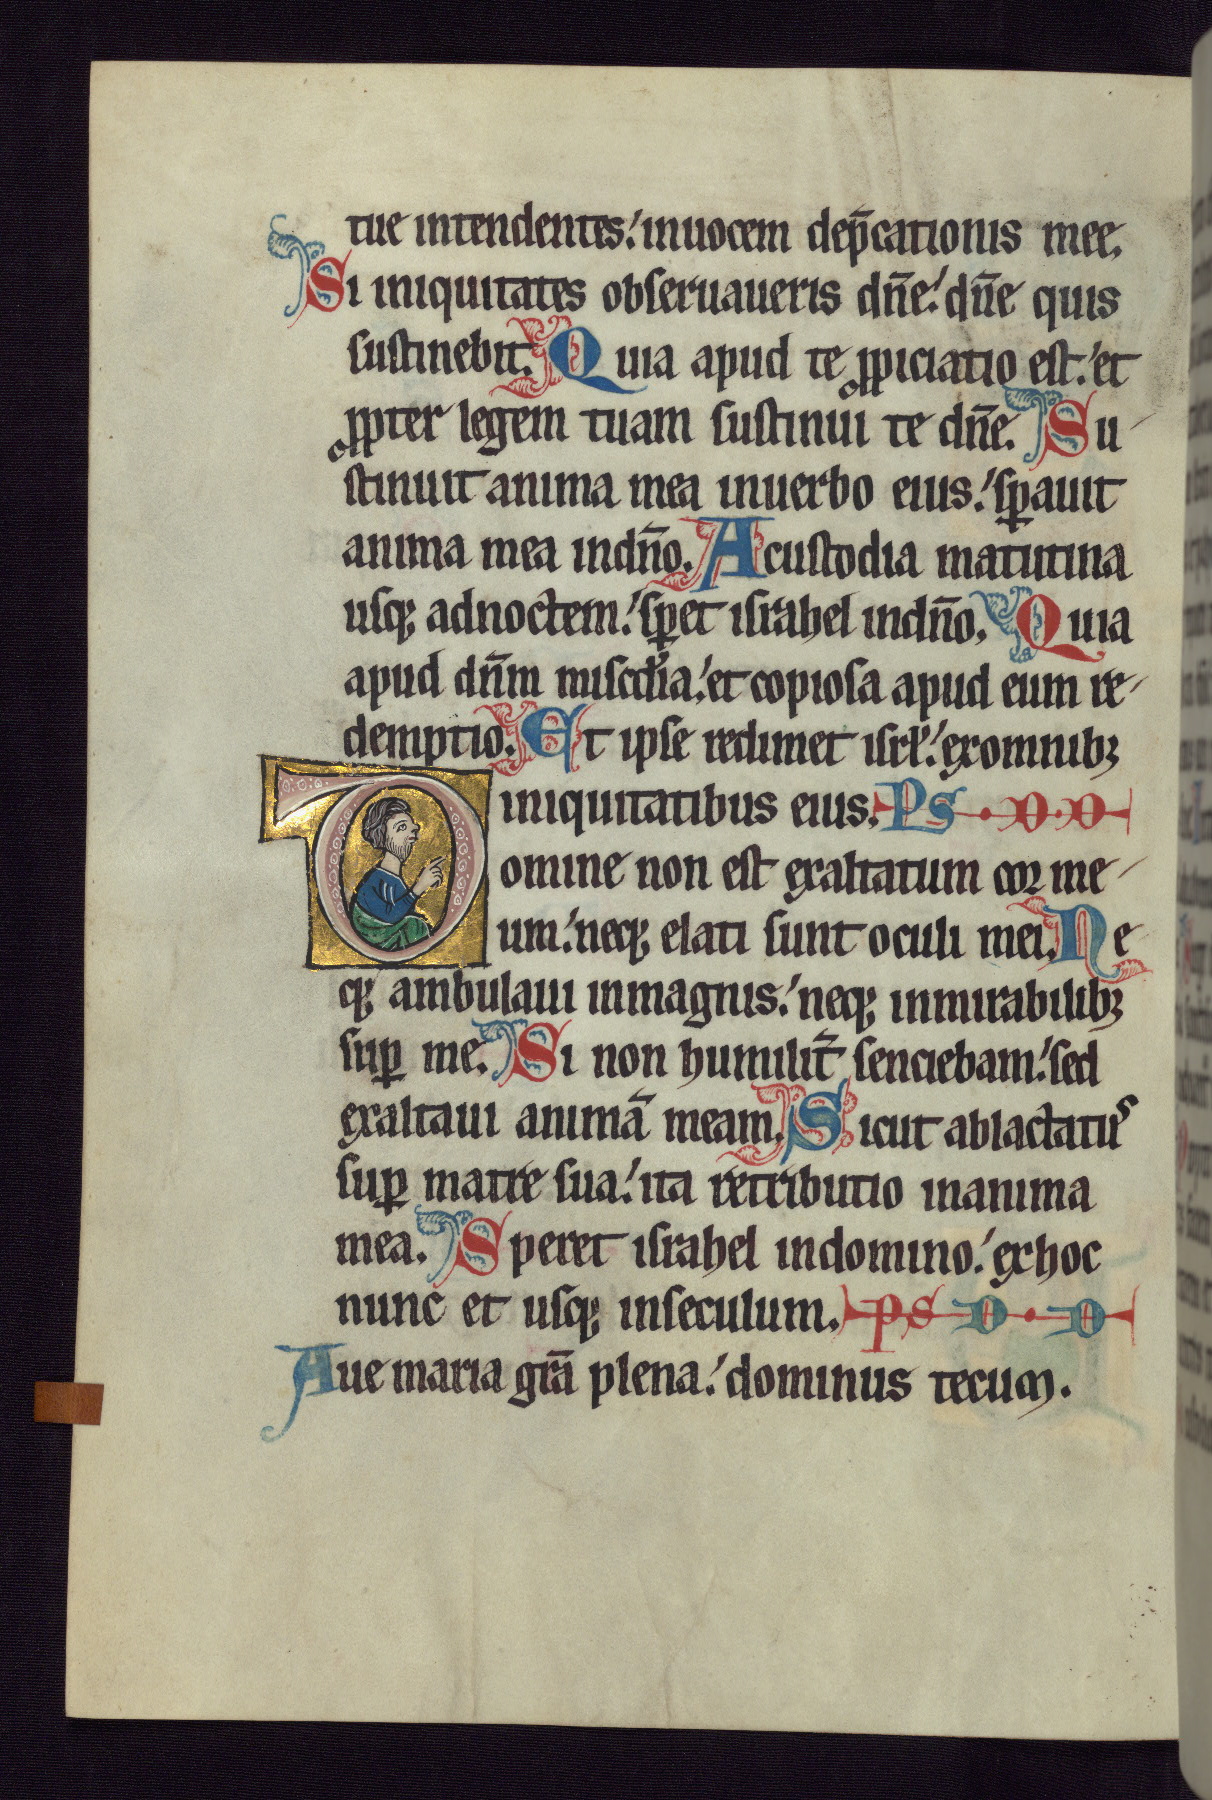 tue intendentes: inuocem dep̄cationis mee.
Si iniquitates obseruaueris dn̄e: dn̄e quis
sustinebit. Quia apud te ꝓpiciatio est: et
ꝓpter legem tuam sustinui te dn̄e. Su
stinuit anima mea inuerbo eius: sꝑauit
anima mea indn̄o. A custodia matutina
usq; adnoctem: sꝑet israhel indn̄o. Quia
apud dn̄m miscd̄ia: et copiosa apud eum re
demptio. Et ipse redimet isrl̄: exomnibꝫ
iniquitatibus eius. PS
Domine non est exaltatum cor me
um: neq; elati sunt oculi mei. Ne
q; ambulaui inmagnis: neq; inmirabilibꝫ
suꝑ me. Si non humilit̄ senciebam: sed
exaltaui animā meam. Sicut ablactatus
suꝑ matre sua: ita retributio inanima
mea. Speret israhel indomino: exhoc
nunc et usq; inseculum. PS D D
Aue maria grā plena: dominus tecum.